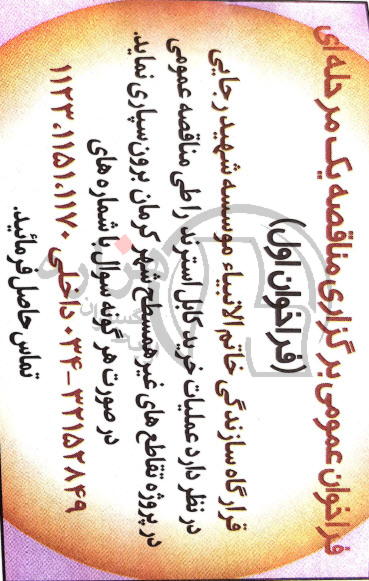 فراخوان عمومی برگزاری مناقصه یک مرحله ای
(فراخوان اول)
قرارگاه سازندگی خاتم الانبیاء موسسه شهید رجایی
در نظر دارد عملیات خرید کابل استرند را طی مناقصه عمومی
در پروژه تقاطع های غیرهمسطح شهر کرمان برون‌سپاری نماید.
در صورت هر گونه سوال با شماره های
۰۳۴-۳۲۱۵۲۸۴۹ داخلی ۱۱۲۳،۱۱۵۱،۱۱۷۰
تماس حاصل فرمائید.